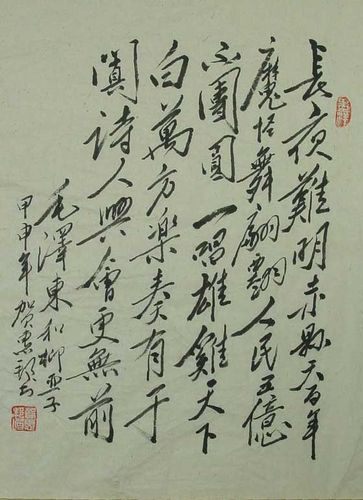 長夜難明赤縣天百年
魔怪舞翩躚人民五億
不團圓 一唱雄雞天下
白萬方樂奏有于
闐詩人興會更無前
毛澤東和柳亞子
甲申年賀惠书